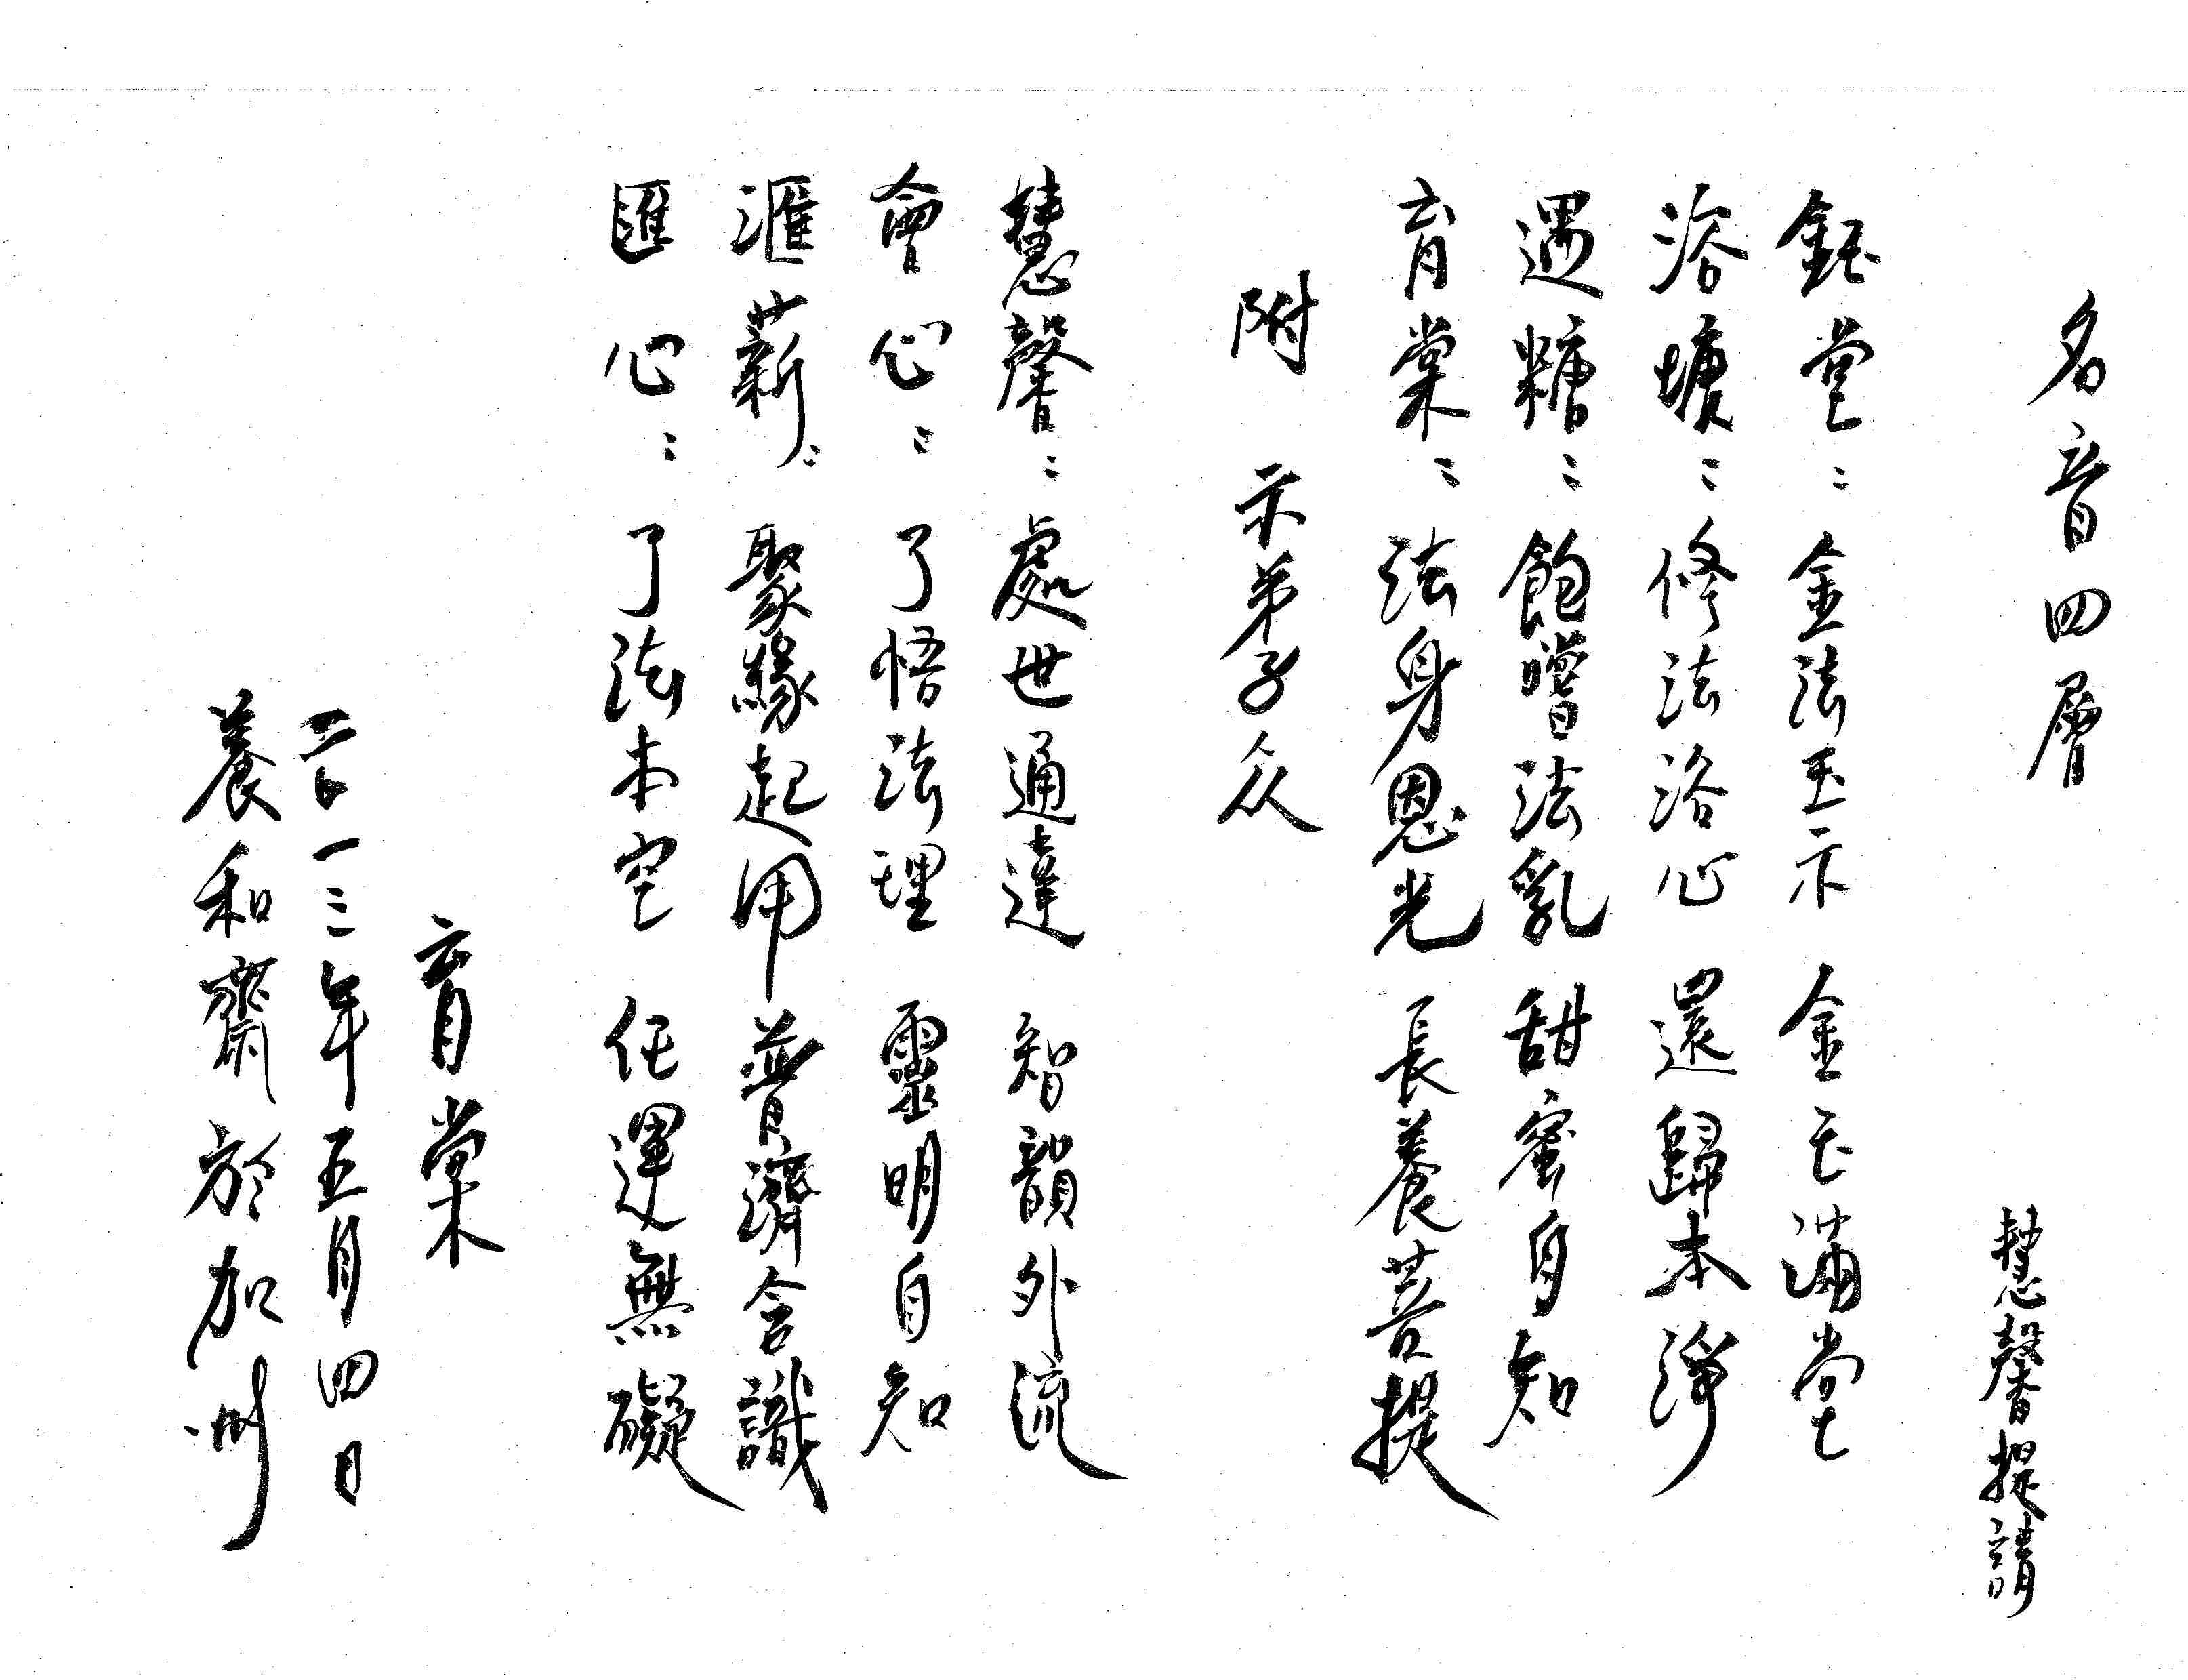 名音四層
慧馨提請
鈺堂：金法玉示 金玉滿堂
浴塘：修法浴心 還歸本淨
遇糖：飽嚐法乳 甜蜜自知
育棠：法身恩光 長養菩提
附 示弟子众
慧馨：處世通達 智韻外流
會心：了悟法理 靈明自知
滙薪：聚緣起用 普濟含識
匯心：了法本空 任運無礙
育棠
二〇一三年五月四日
養和齋於加州